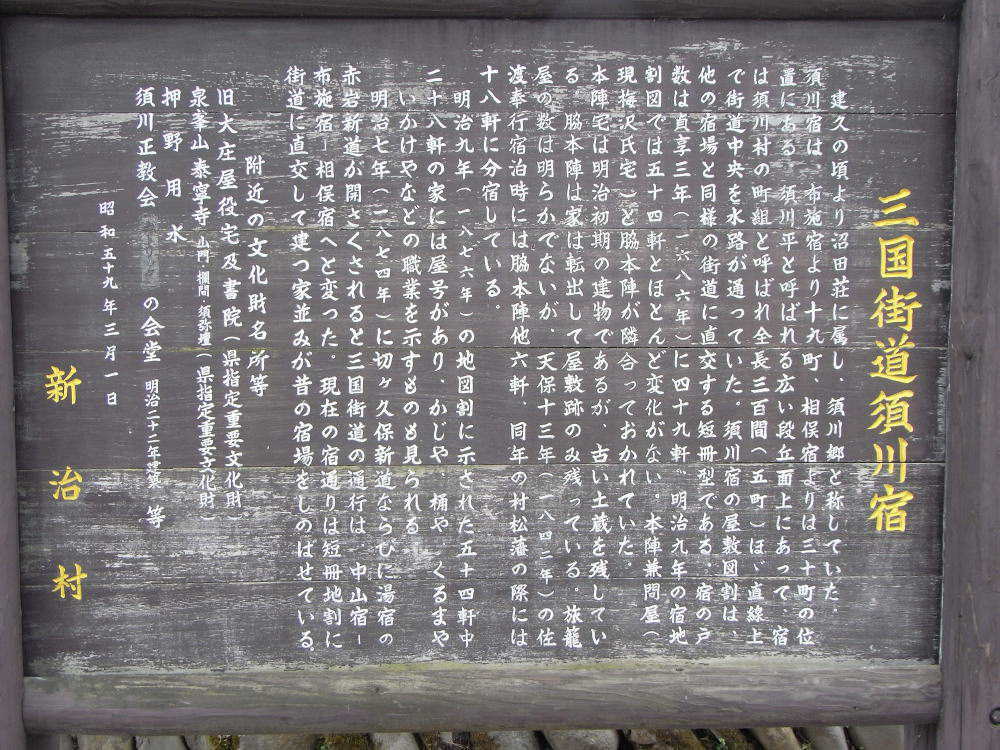 三国街道須川宿
建久の頃より沼田荘に属し、須川郷と称していた。
須川宿は、布施宿より十九町、相俣宿よりは三十町の位
置にある。須川平と呼ばれる広い段丘面上にあって、宿
は須川村の町組と呼ばれ全長三百間（五町）ほゞ直線上
で街道中央を水路が通っていた。須川宿の屋敷図割は、
他の宿場と同様の街道に直交する短冊型である。宿の戸
数は貞享三年（一六八六年）に四十九軒、明治九年の宿地
割図では五十四軒とほとんど変化がない。本陣兼問屋（
現梅沢氏宅）と脇本陣が隣合っておかれていた。
本陣宅は明治初期の建物であるが、古い土蔵を残してい
る。脇本陣は家は転出して屋敷跡のみ残っている。旅籠
屋の数は明らかでないが、天保十三年（一八四二年）の佐
渡奉行宿泊時には脇本陣他六軒、同年の村松藩の際には
十八軒に分宿している。
明治九年（一八七六年）の地図割に示された五十四軒中
二十八軒の家には屋号があり、かじや、桶や、くるまや
いかけやなどの職業を示すものも見られる
明治七年（一八七四年）に切ヶ久保新道ならびに湯宿の
赤岩新道が開さくされると三国街道の通行は、中山宿－
布施宿－相俣宿へと変った。現在の宿通りは短冊地割に
街道に直交して建つ家並みが昔の宿場をしのばせている。
附近の文化財名所等
旧大庄屋役宅及書院（県指定重要文化財）
泉峯山泰寧寺 山門 欄間 須弥壇（県指定重要文化財
押野用水
須川正教会の会堂 明治二十二年建築 等
昭和五十九年三月一日
新治村